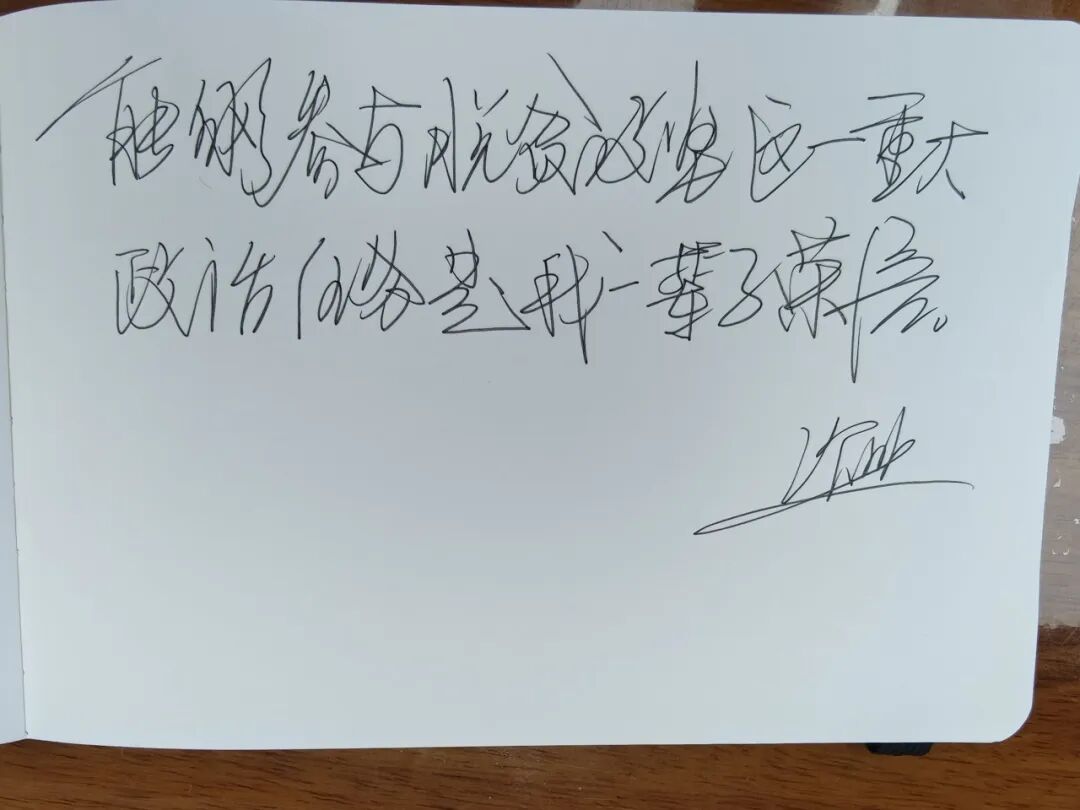 能够参与脱贫攻坚这一重大
政治任务是我一辈子荣